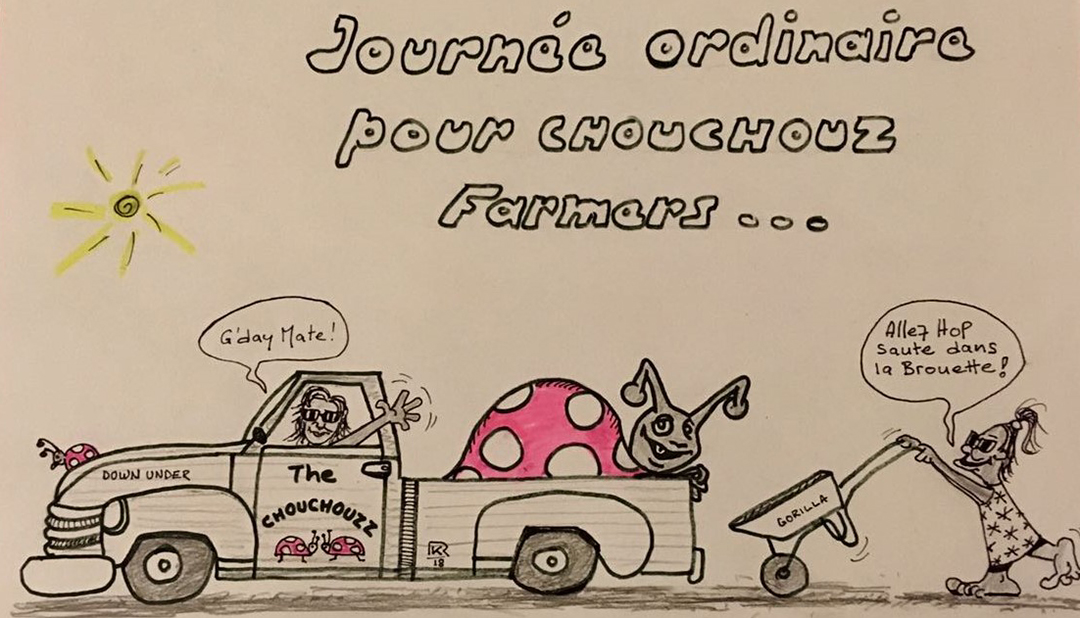 Journée ordinaire
pour CHOUCHOUZ
Farmers...
G'day Mate!
Allez Hop
saute dans
la Brouette!
DOWN UNDER
The
CHOUCHOUZZ
GORILLA
KR
18